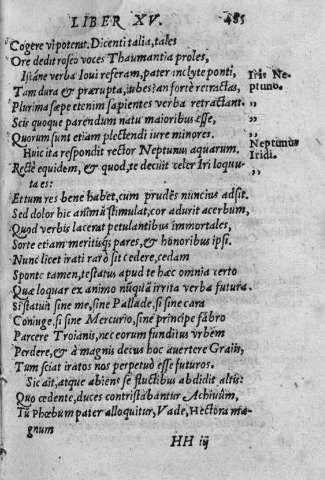 LIBER XV. 485
Cogere vi potent. Dicenti talia, tales
Ore dedit roseo voces Thaumantia proles,
Istáne verba Ioui referam, pater inclyte ponti, Iris Ne-
Tam dura & prærupta, iubes? an fortè retractas, ptuno.
Plurima sæpe etenim sapientes verba retractant. „
Scis quoque parendum natu maioribus esse, „
Quorum sunt etiam plectendi iure minores. „
Huic ita respondit rector Neptunus aquarum. Neptunus
Rectè equidem, & quod, te decuit celer Iri loquu- Iridi.
ta es: „
Et tum res bene habet, cum prudẽs nũcius adsit. „
Sed dolor hic animũ stimulat, cor adurit acerbum,
Quod verbis lacerat petulantibus immortales,
Sorte etiam meritisq; pares, & honoribus ipsi.
Nunc licet irati rarò sit cedere, cedam
Sponte tamen, testatus apud te hæc omnia certo
Quæ loquar ex animo nũquã irrita verba futura.
Si statuit sine me, sine Pallade, si sine cara
Coniuge, si sine Mercurio, sine principe fabro
Parcere Troianis, nec eorum funditus vrbem
Perdere, & à magnis decus hoc auertere Graiis,
Tum sciat iratos nos perpetuò esse futuros.
Sic ait, atque abiens se fluctibus abdidit altis:
Quo cedente, duces contristabantur Achiuûm,
Tũ Phœbum pater alloquitur, Vade, Hectora ma-
gnum
HH iij